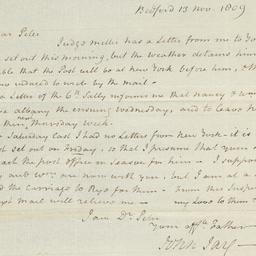 Bedford 13 Nov. 1809
ear Peter
Judge Miller has a Letter from me to
set out this morning, but the weather detains him
ble that the Post will be at new York before him,
induced to write by the mail—
a Letter of the 6th Sally informs me that nancy &
albany the ensuing Wednesday, and to leave
Thursday week.
Saturday last I had no Letters from new York— it is
ot set out on Friday, so that I presume that your
each the post office in season for him— I suppose
are now with you, but I am at a
the carriage to Rye for them— From this
's mail will relieve me— my Love to them
I am Dr. Peter
Your affte. Father
John Jay—